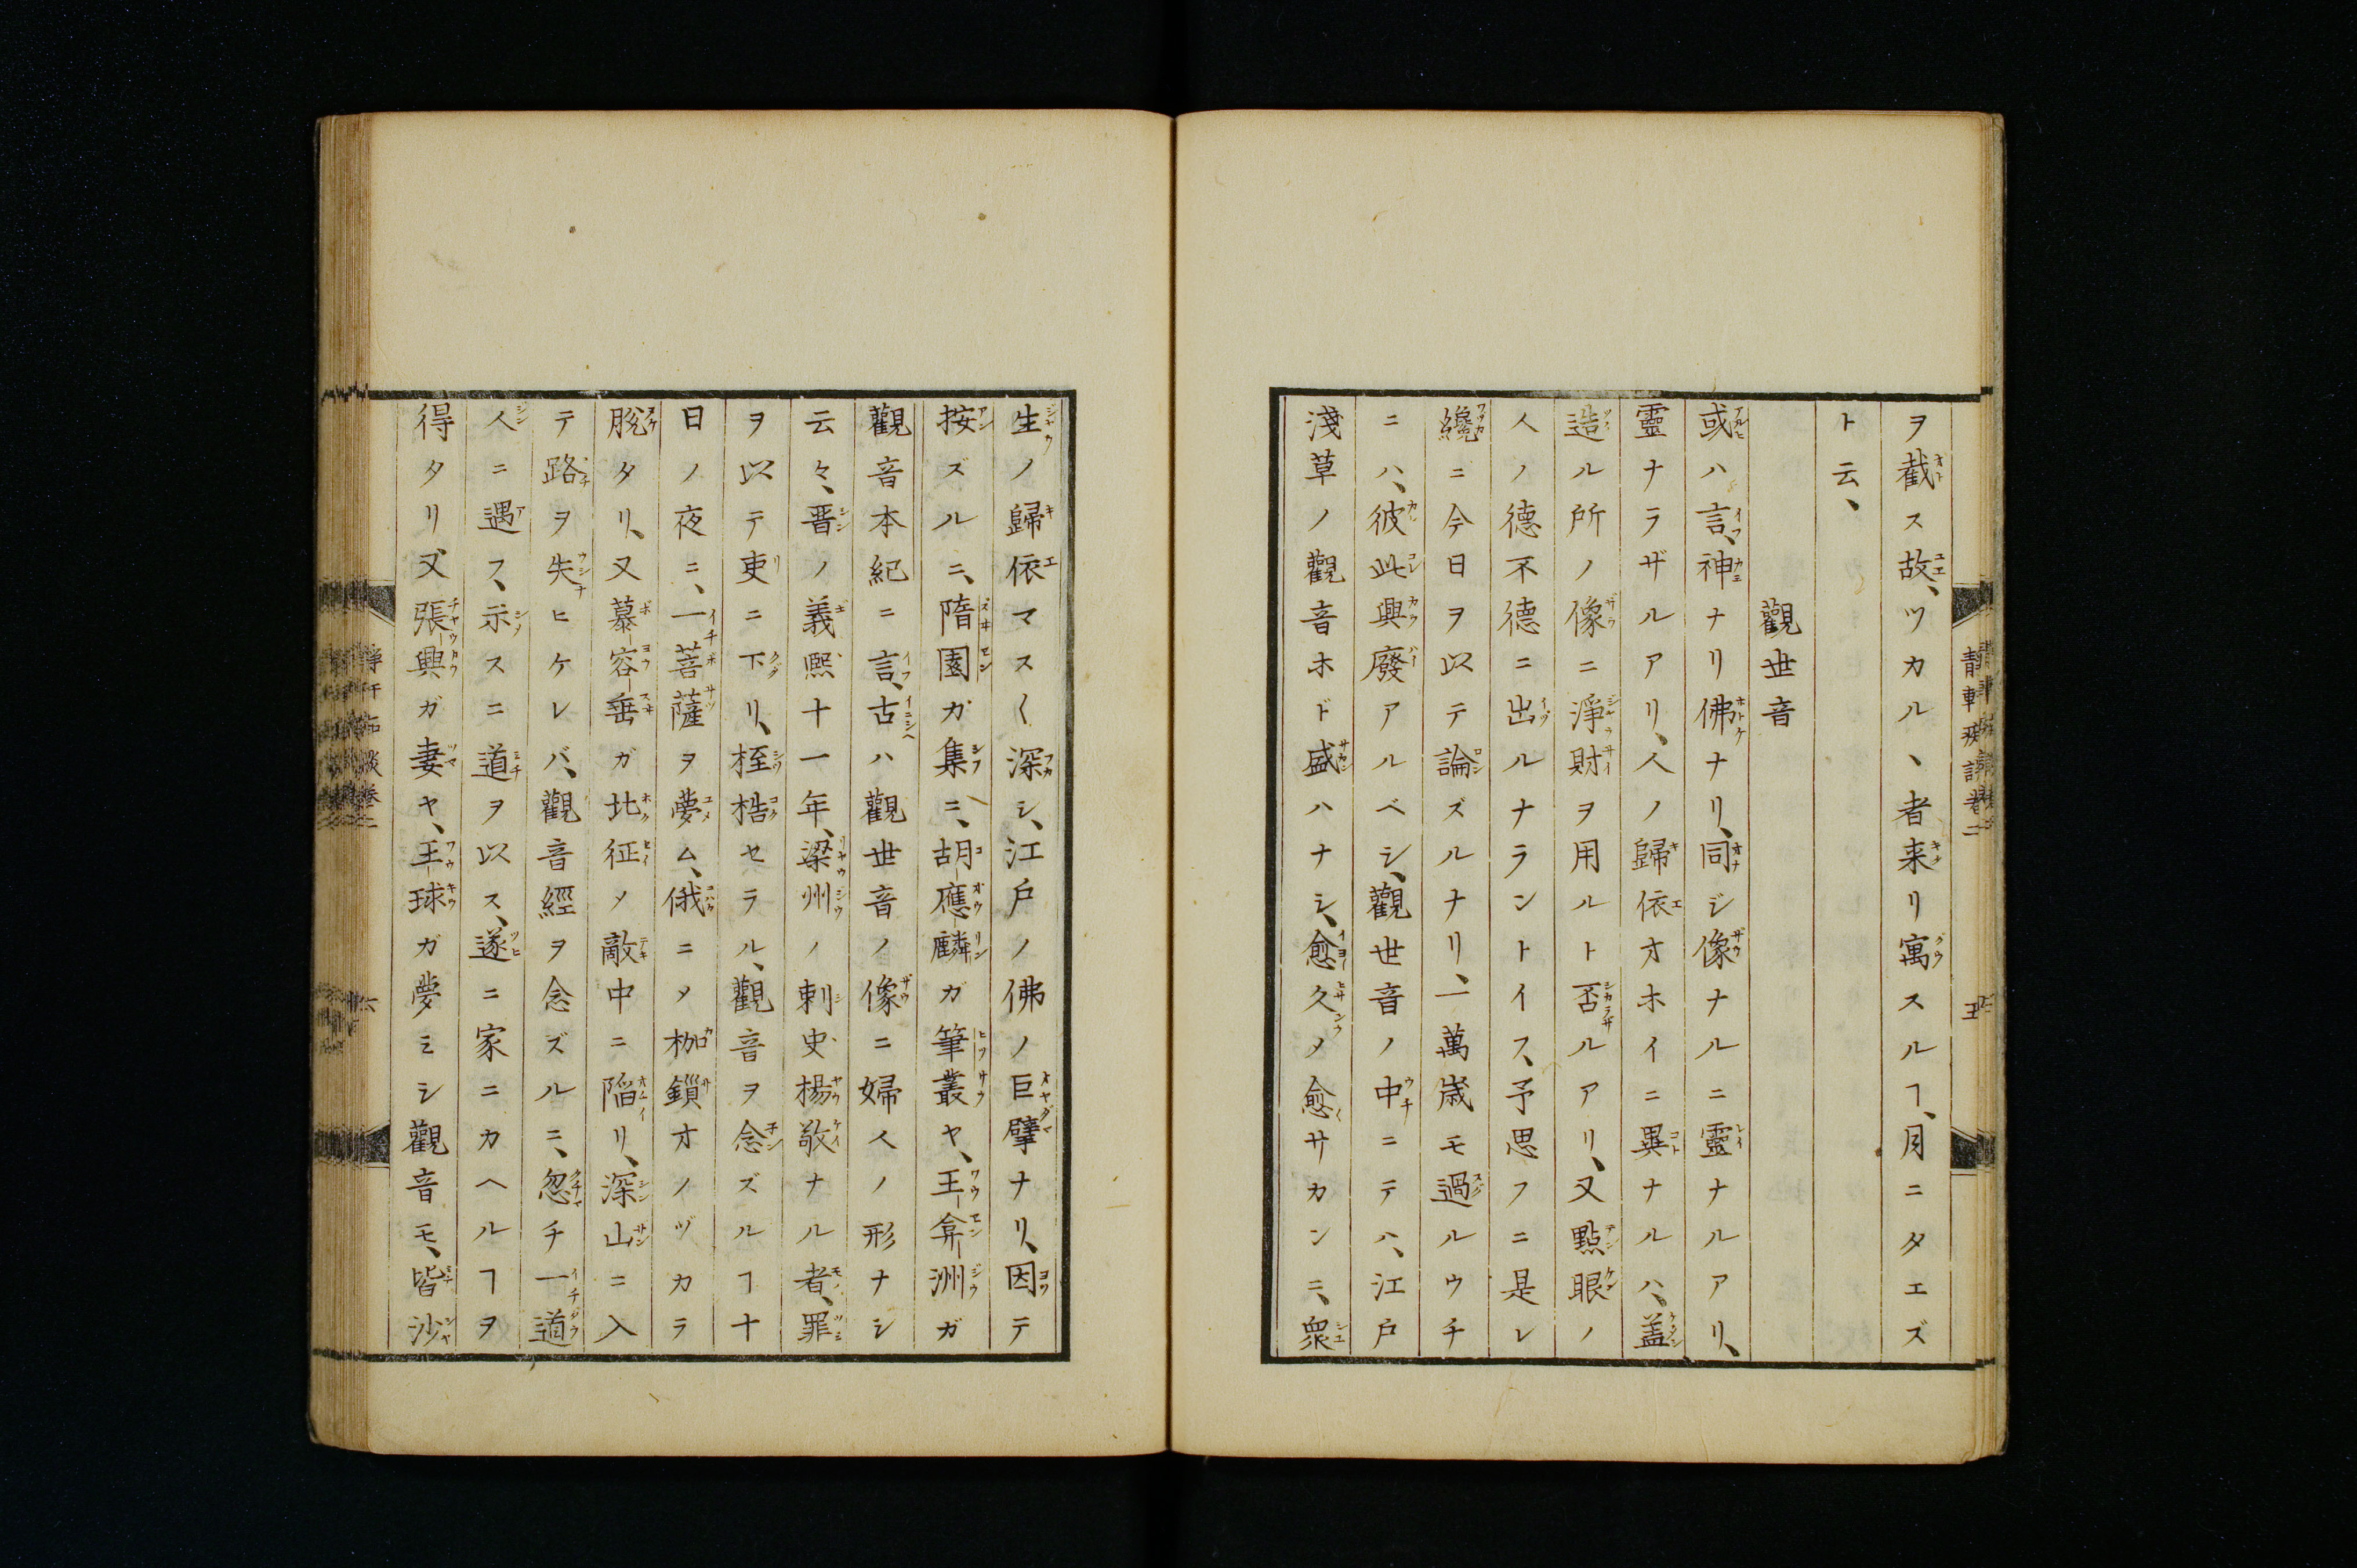 ヲ截ス故、ツカル、者来リ寓スルヿ、月ニタエズ
ト云、
觀世音
或ハ言、神ナリ佛ナリ、同ジ像ナルニ靈ナルアリ、
靈ナラザルアリ、人ノ歸依オホイニ異ナルハ、蓋
造ル所ノ像ニ淨財ヲ用ルト否ルアリ、又點眼ノ
人ノ德不德ニ出ルナラントイス、予思フニ是レ
纔ニ今日ヲ以テ論ズルナリ、一萬歳モ過ルウチ
ニハ、彼此興廢アルベシ、觀世音ノ中ニテハ、江戸
淺草ノ觀音ホド盛ハナシ、愈久メ愈サカンニ、衆
生ノ歸依マス〱深シ、江戸ノ佛ノ巨擘ナリ、因テ
按ズルニ、隋園ガ集ニ、胡應麟ガ筆叢ヤ、王弇洲ガ
觀音本紀ニ言、古ハ觀世音ノ像ニ婦人ノ形ナシ
云々、晋ノ義熙十一年、梁州ノ刺史楊敬ナル者、罪
ヲ以テ吏ニ下リ、桎梏セラル、觀音ヲ念ズルヿ十
日ノ夜ニ、一菩薩ヲ夢ム、俄ニメ枷鎖オノヅカラ
脫タリ、又慕容垂ガ北征メ敵中ニ陷リ、深山ニ入
テ路ヲ失ヒケレバ、觀音經ヲ念ズルニ、忽チ一道
人ニ遇フ、示スニ道ヲ以ス、遂ニ家ニカヘルヿヲ
得タリ、又張興ガ妻ヤ、王球ガ夢ミシ觀音モ、皆沙